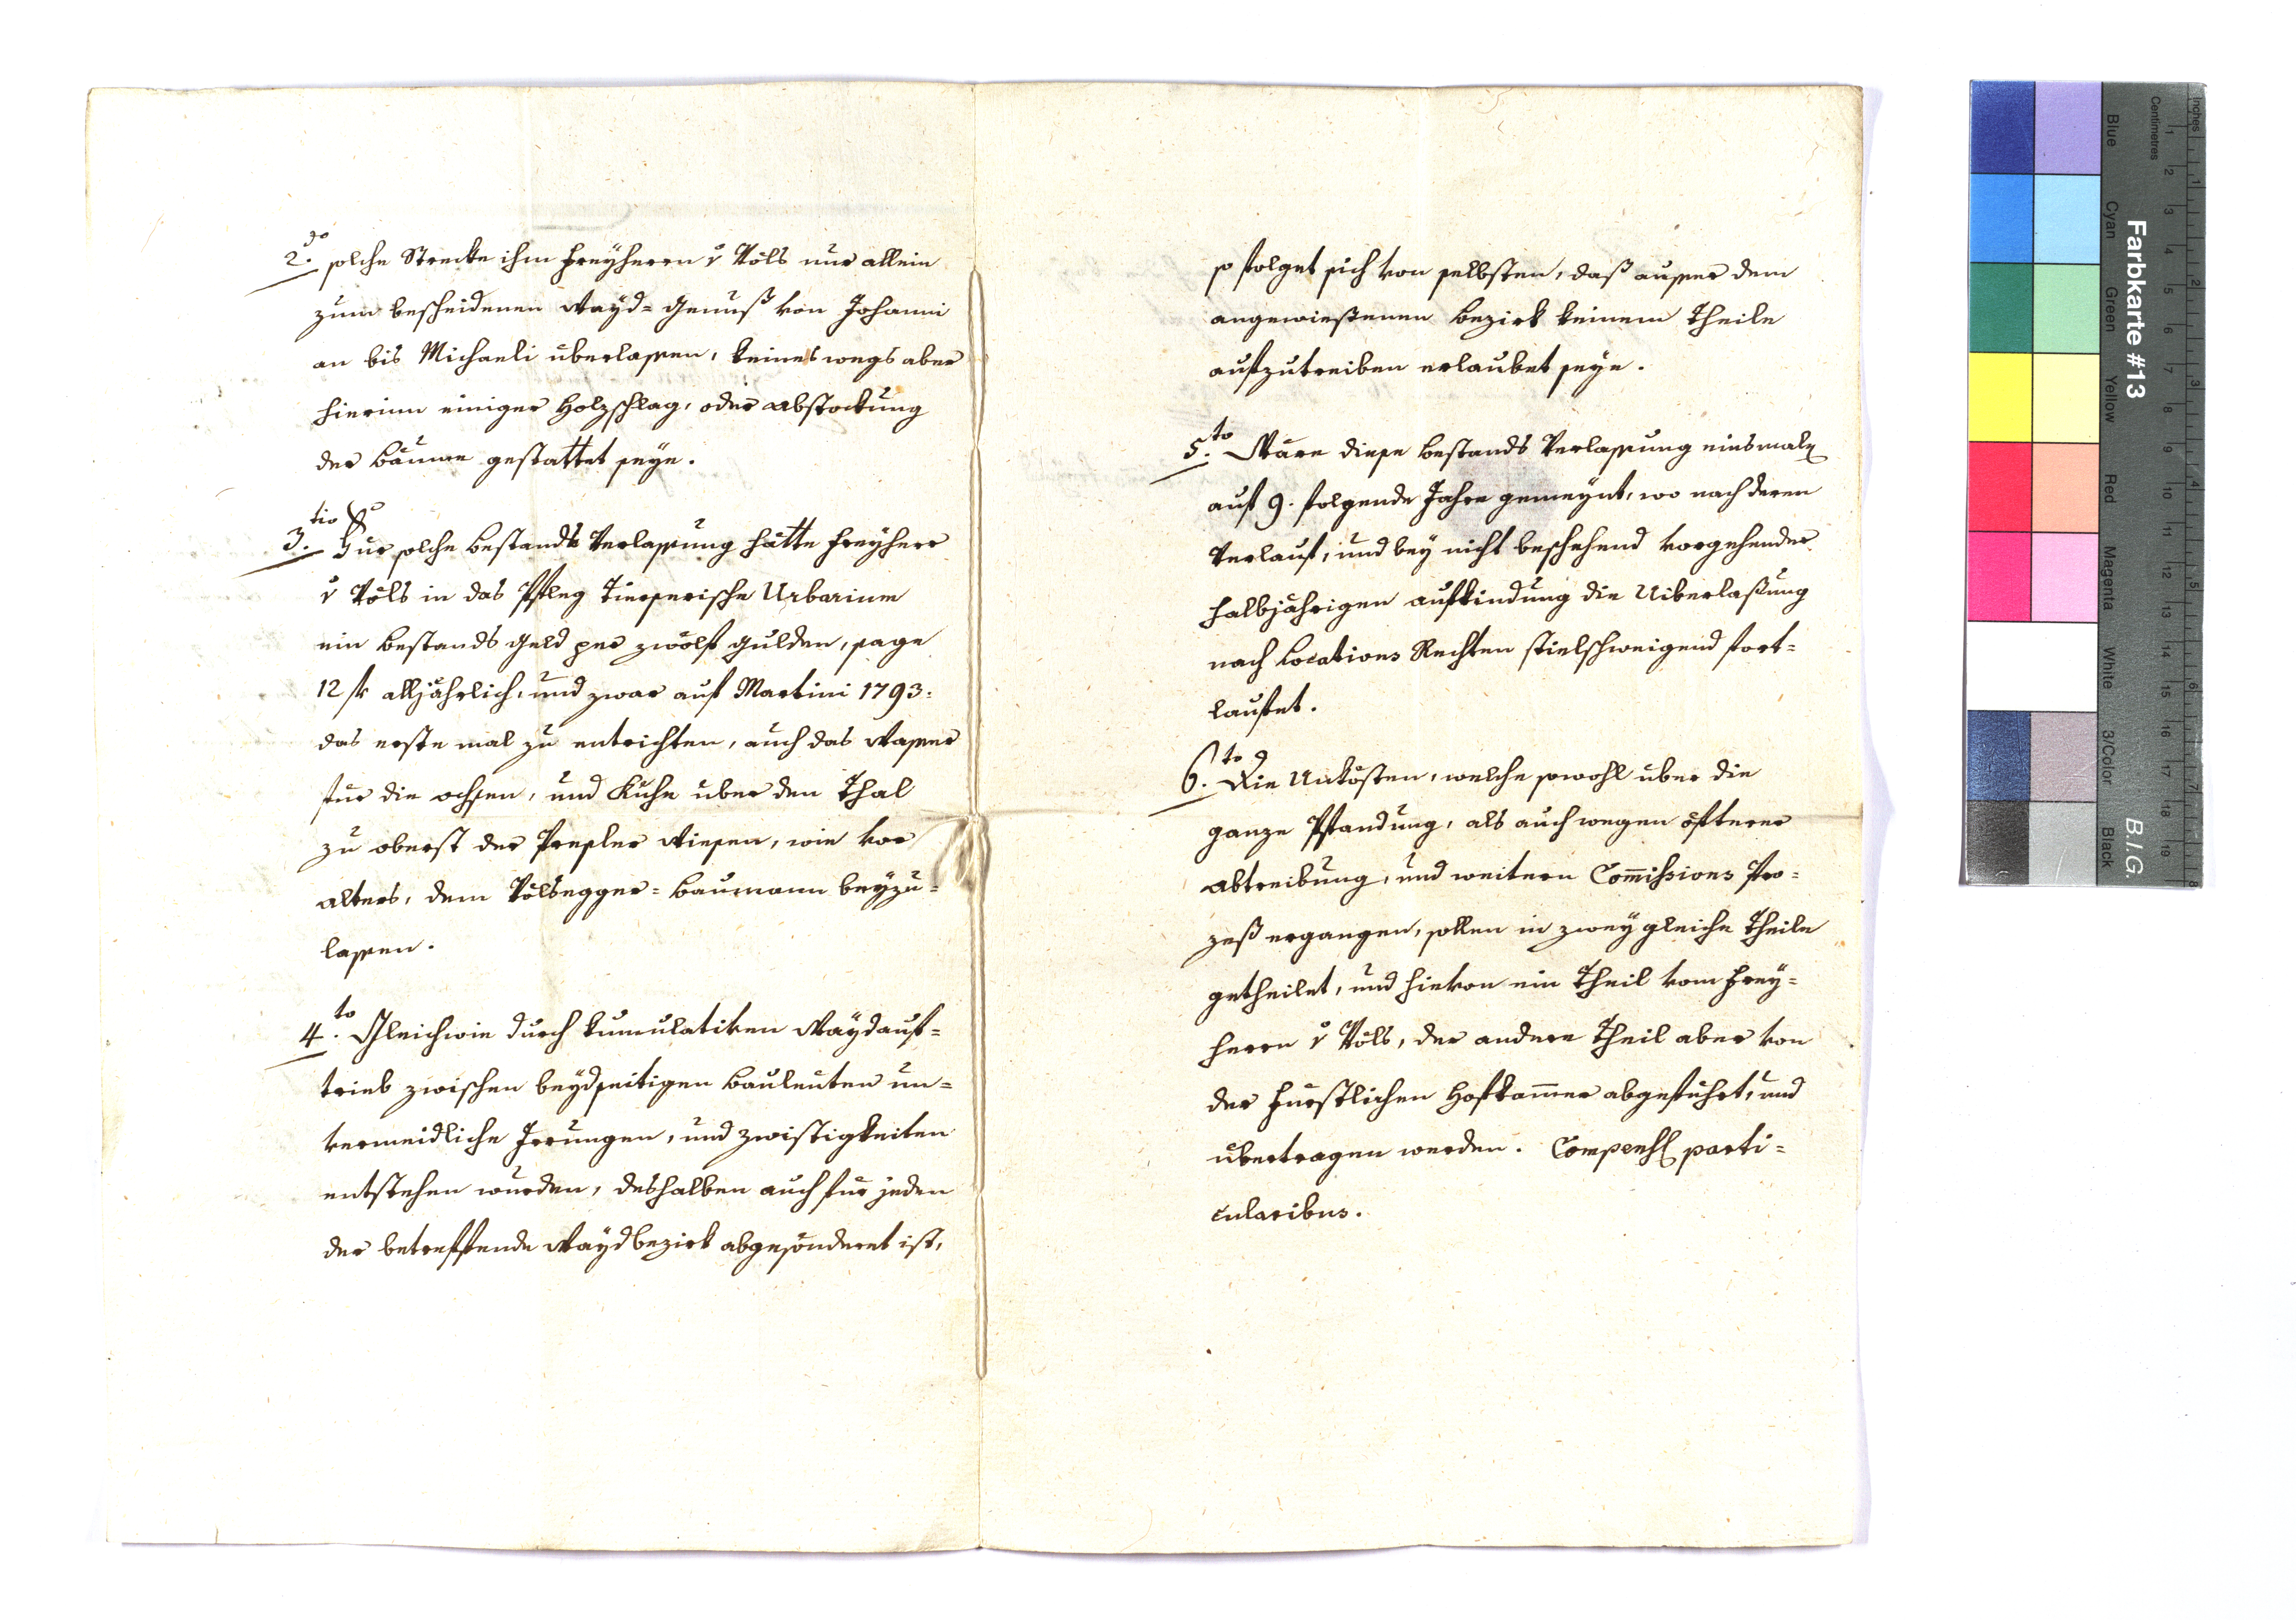 2.do solche Strecke ihm Freyherrn v Völs nur allein
zum bescheidenen Wayd= Genuß von Johanni
an bis Michaeli überlassen, keines wegs aber
hierinn einiger Holzschlag, oder Abstockung
der Bäume gestattet seye.
3.tio Für solche Bestands Verlassung hätte Freyherr
v Völs in das Pfleg Tierserische Urbarium
ein Bestands Geld per zwölf Gulden, sage
12 fr alljährlich, und zwar auf Martini 1793:
das erste mal zu entrichten, auch das Wasser
für die Ochsen, und Kühe über den Thal
zu oberst der Wiesen, wie vor
alters, dem Völsegger= Baumann beyzu=
lassen.
4.to Gleichwie durch kumulativen Waydauf=
trieb zwischen beydseitigen Bauleuten un=
vermeidliche Irrungen, und Zwistigkeiten
entstehen wurden, deshalben auch für jeden
der betreffende Waydbezirk abgesönderet ist,
so folget sich von selbsten, daß ausser dem
angewießenen Bezirk keinem Theile
aufzutreiben erlaubet seye.
5.to Wäre diese Bestands Verlassung einsmals
auf 9. folgende Jahre gemeynt, wo nach deren
Verlauf, und bey nicht beschehend vorgehender
halbjährigen Aufkindung die Uiberlaßung
nach Locations Rechten stielschweigend fort=
laufet.
6.to Die Unkösten, welche sowohl über die
ganze Pfandung, als auch wegen öfterer
Abtreibung, und weitern Comissions Pro=
zeß ergangen, sollen in zwey gleiche Theile
getheilet, und hievon ein Theil vom Frey=
herrn v Völs, der andere Theil aber von
der Fürstlichen Hofkammer abgeführt, und
übertragen werden. parti=
cularibus.
Farbkarte #13
B.I.G.
Inches
Centimetres
1 2 3 4 5 6 7 8
1 2 3 4 5 6 7 8 9 10 11 12 13 14 15 16 17 18 19
Blue
Cyan
Green
Yellow
Red
Magenta
White
3/Color
Black